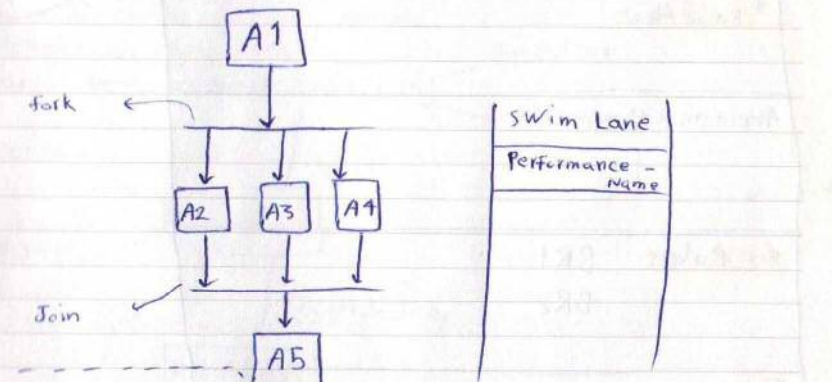 A1
fork
A2 A3 A4
Join
A5
Swim Lane
Performance -
Name
BR1
BR2